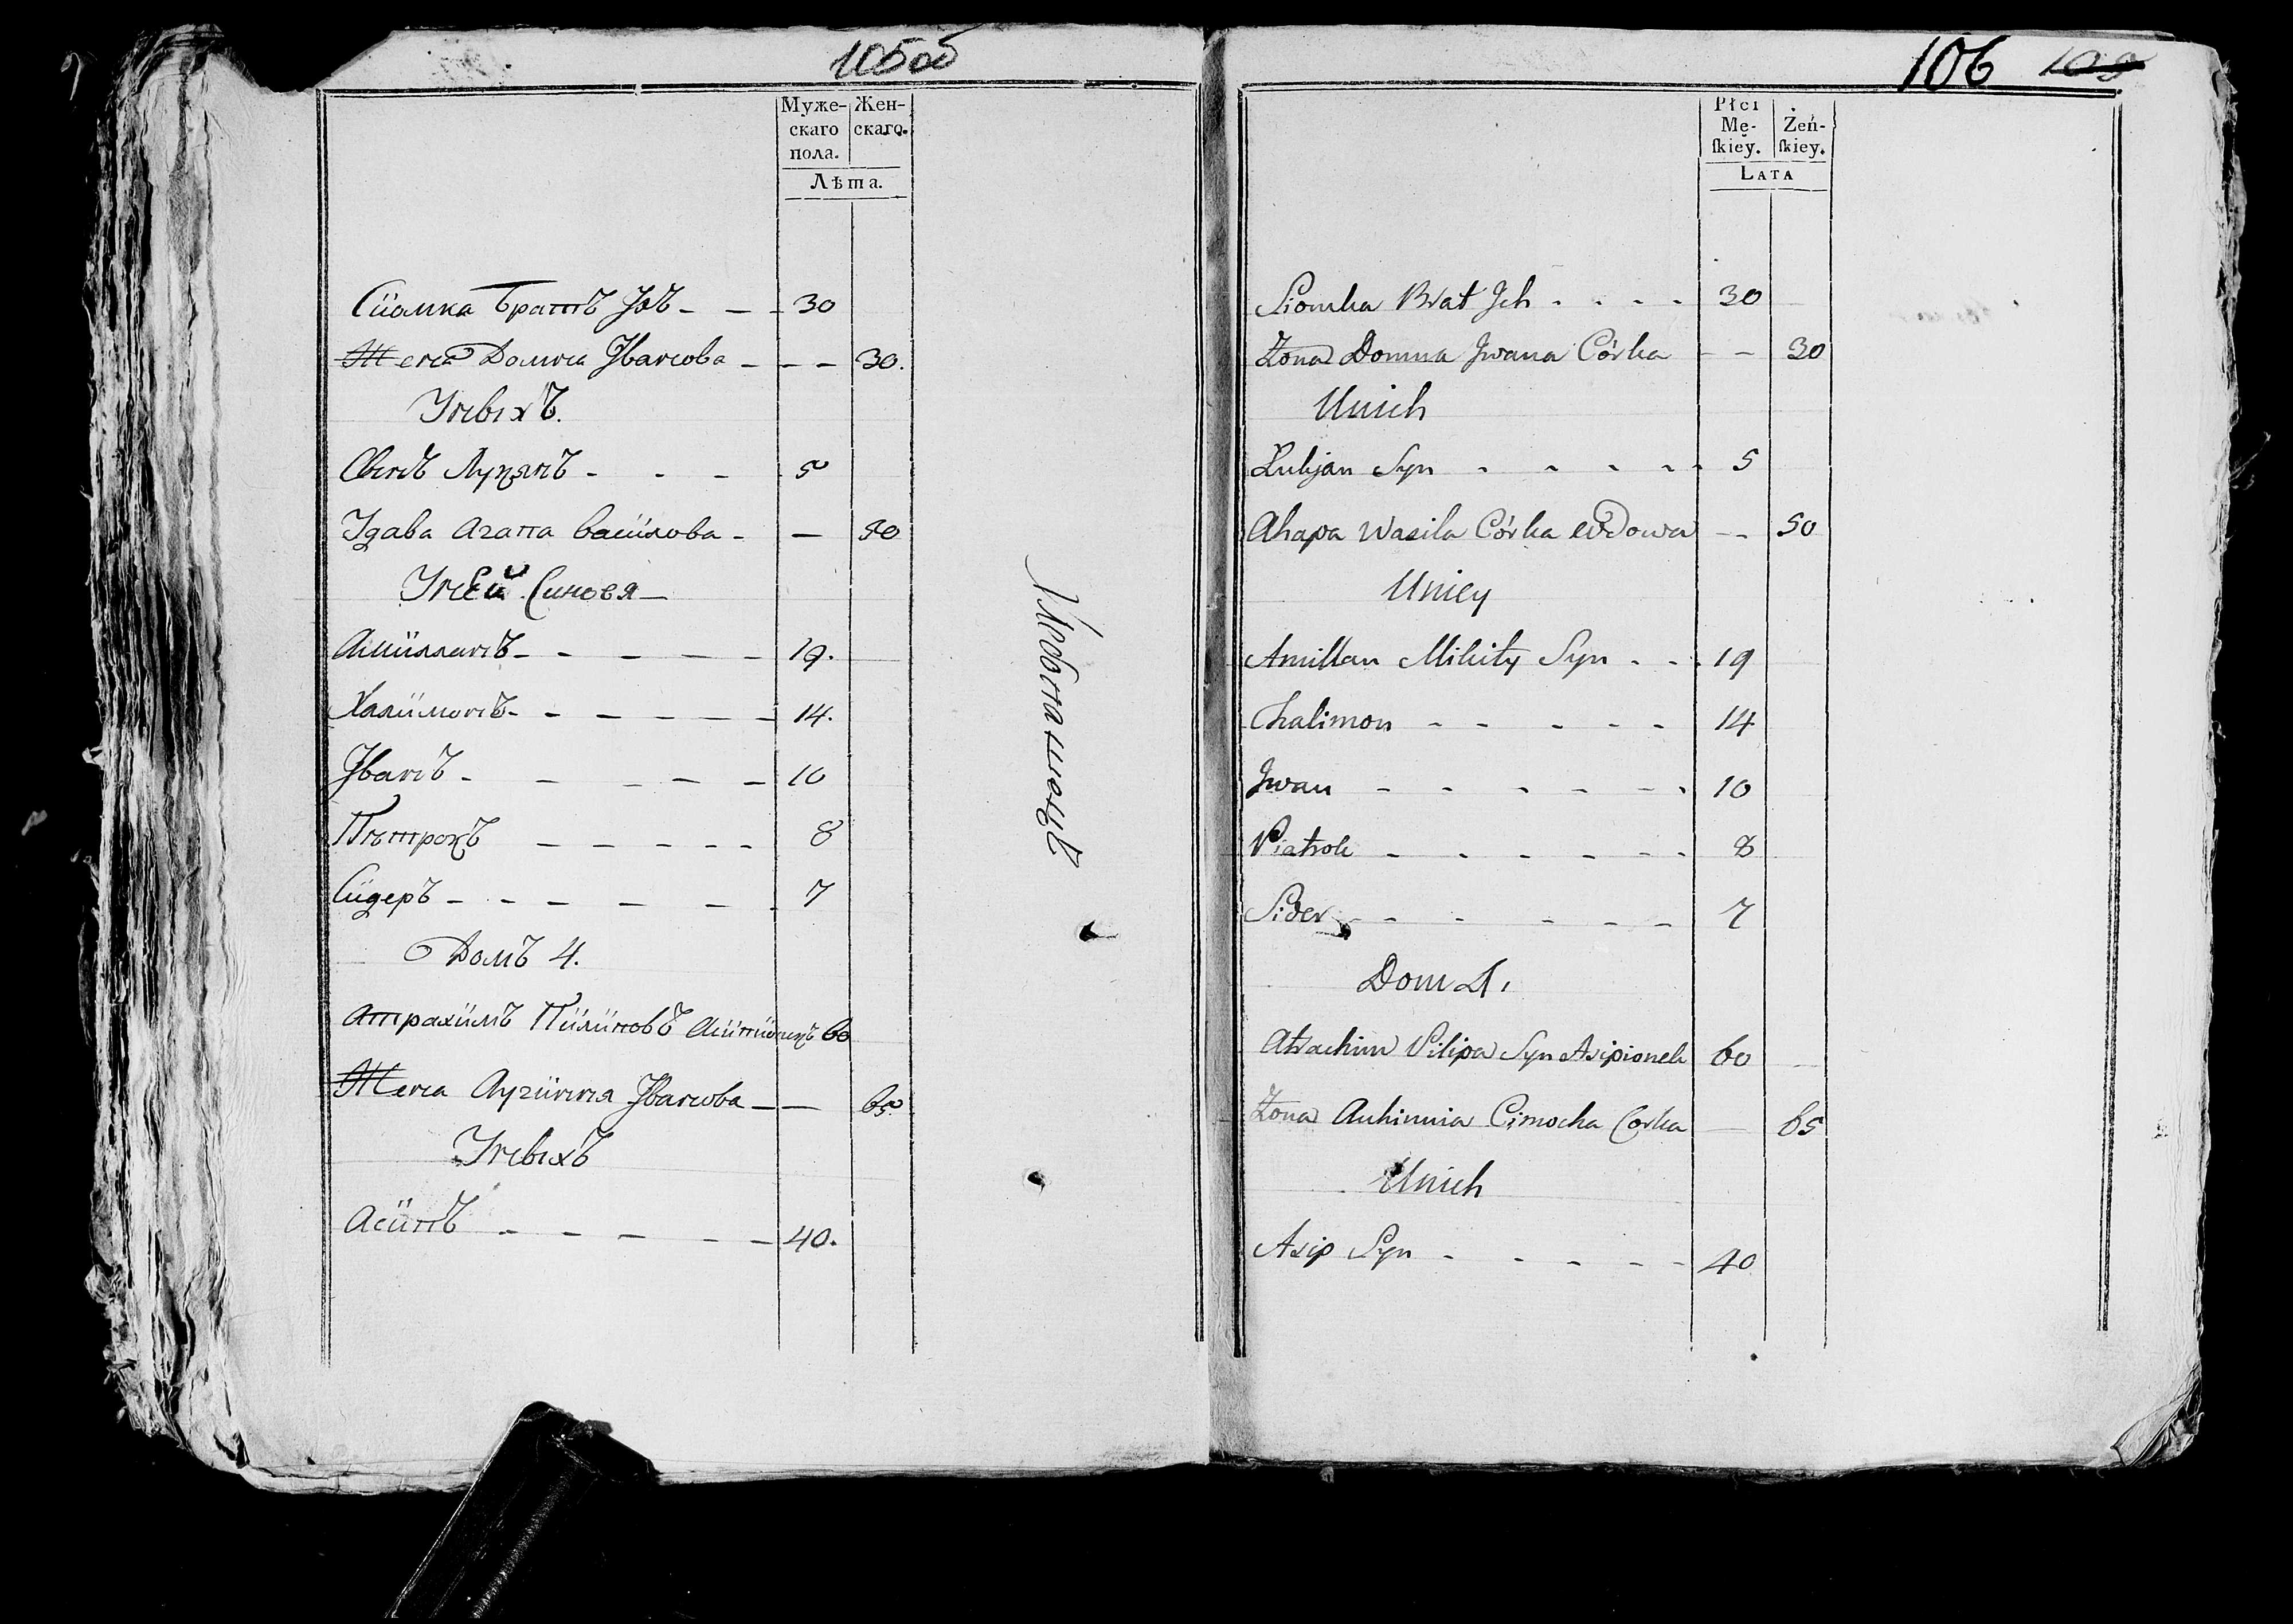 105об
Муже- Жен-
скаго скаго.
пола.
Лѣта.
Сіомка Братъ Јхъ - - - 30
Жена Домна Јванова - - - 30.
Унихъ.
Синъ Лукянъ - - - 5
Удава Агапа Васілова - - 50
Уней Синовя
Аміллянъ - - - - - 19.
Халімонъ - - - - - - 14.
Јванъ - - - - - 10
Пѣтрокъ - - - - - 8
Сідеръ - - - - - - 7
Домъ 4.
Атрахімъ Піліповъ Асіпіонкъ 60
Жена Аугіння Јванова - - 65.
Унихъ
Асіпъ - - - - - - 40.
106 109
Płci
Mę- Żeń-
ſkiey. ſkiey.
LATA
Siomka Brat Jch . . . . 30
Żona Domna Jwana Córka - - 30
Unich
Łukjan Syn - - - - - 5
Ahapa Wasila Córka Wdowa - - 50
Uniey
Amillan Mikity Syn . . . 19
Chalimon - - - - - 14
Jwan - - - - - - 10
Piatrok - - - - - - 8
Sider - - - - - - 7
Dom 4.
Atrachim Pilipa Syn Asipionek 60
Żona Auhinnia Cimocha Corka - 65
Unich
Asip Syn - - - - - 40